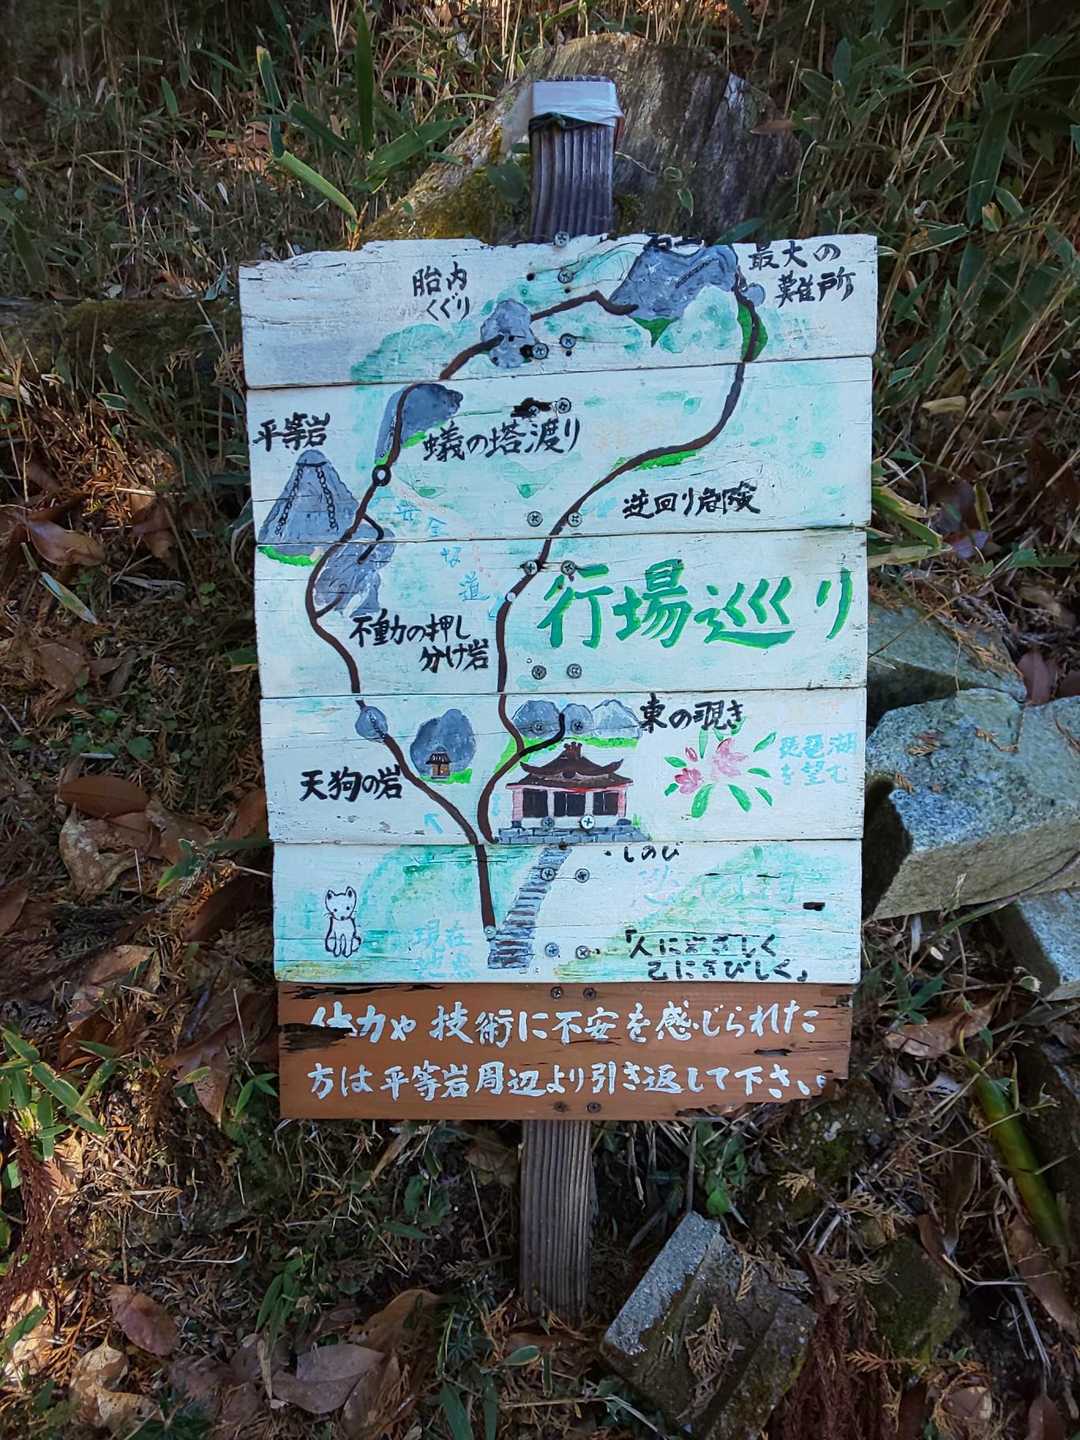 最大の
難所
胎内
くぐり
平等岩
蟻の塔渡り
逆回り危険
安全な道
行場巡り
不動の押し
分け岩
東の覗き
琵琶湖
を望む
天狗の岩
しのび
現在
「人にやさしく
己にきびしく」
体力や技術に不安を感じられた
方は平等岩周辺より引き返して下さい。